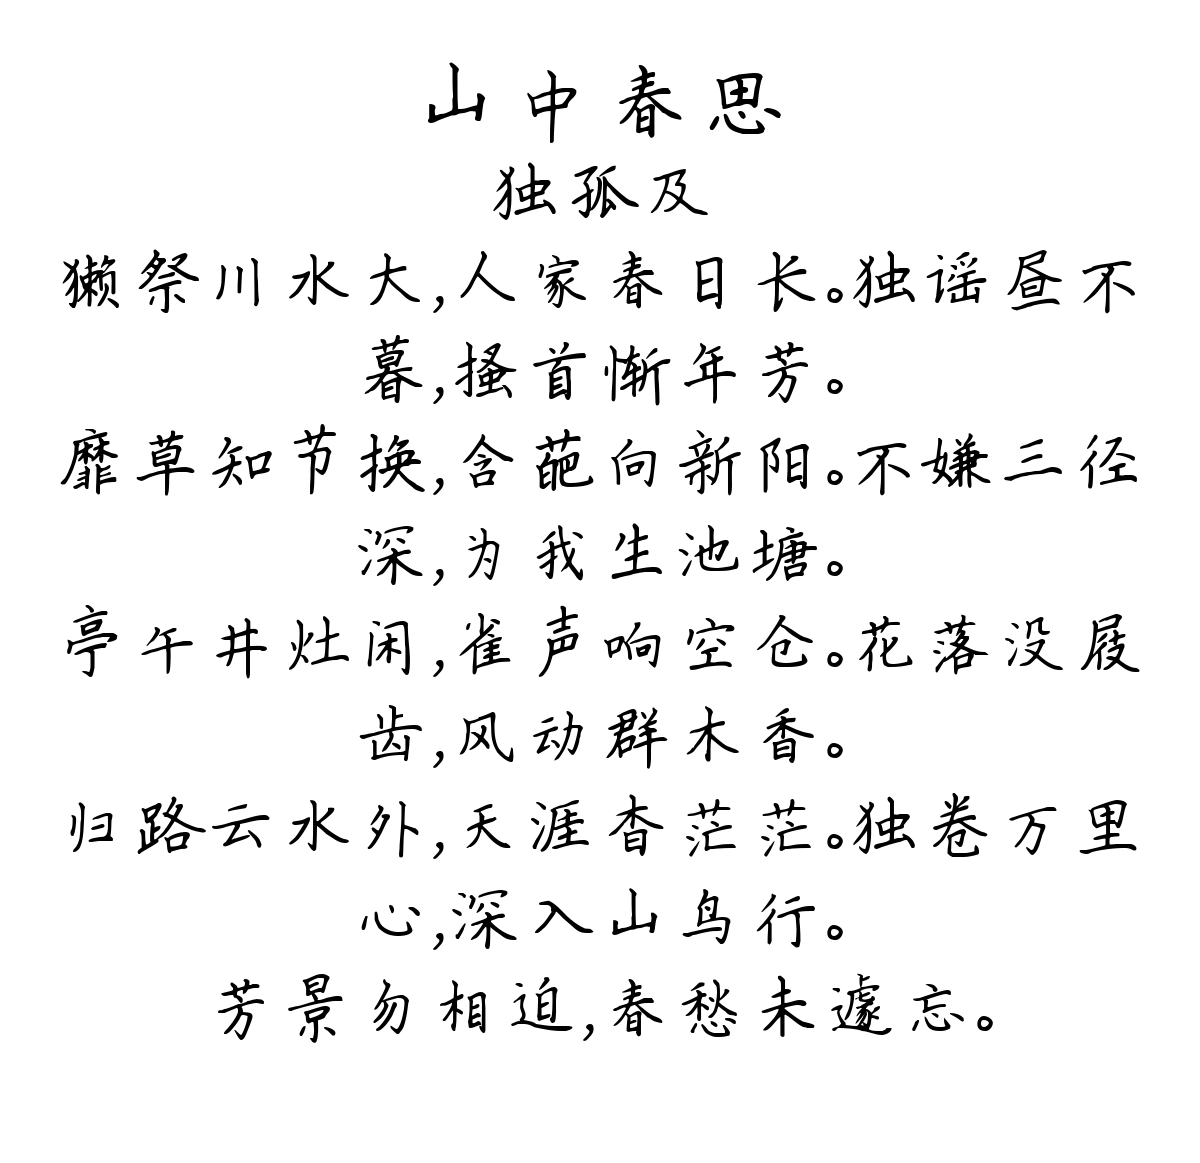 山中春思
独孤及
獭祭川水大,人家春日长。独谣昼不
暮,搔首惭年芳。
靡草知节换,含葩向新阳。不嫌三径
深,为我生池塘。
亭午井灶闲,雀声响空仓。花落没屐
齿,风动群木香。
归路云水外,天涯杳茫茫。独卷万里
心,深入山鸟行。
芳景勿相迫,春愁未遽忘。